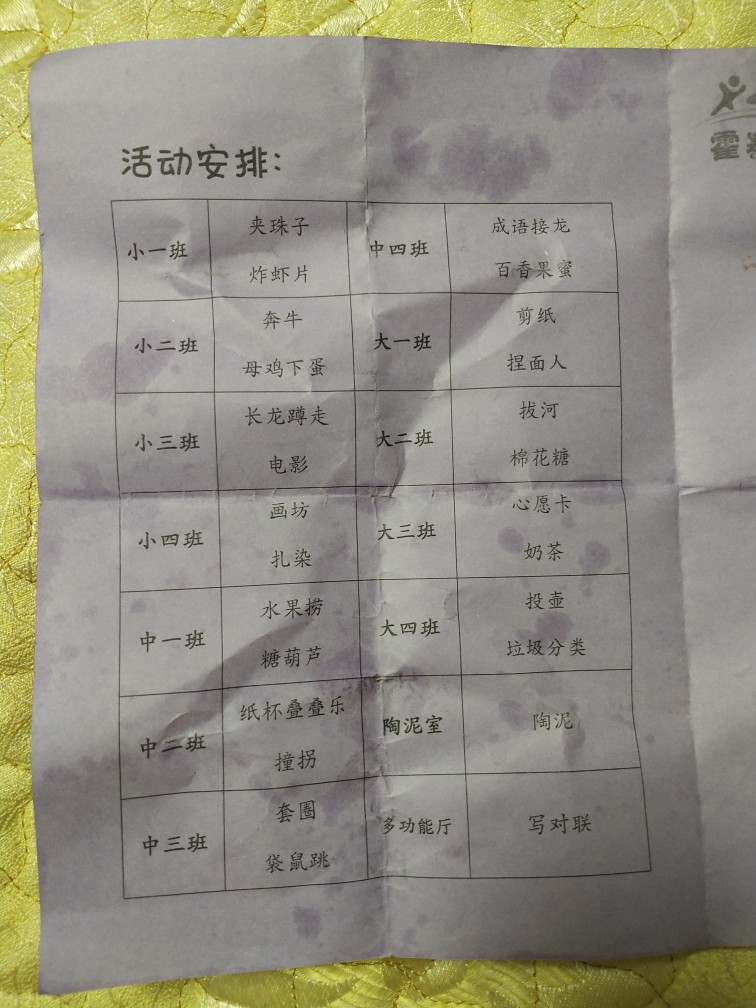 霍
活动安排：
小一班
夹珠子
炸虾片
中四班
成语接龙
百香果蜜
小二班
奔牛
母鸡下蛋
大一班
剪纸
捏面人
小三班
长龙蹲走
电影
大二班
拔河
棉花糖
小四班
画坊
扎染
大三班
心愿卡
奶茶
中一班
水果捞
糖葫芦
大四班
投壶
垃圾分类
中二班
纸杯叠叠乐
撞拐
陶泥室
陶泥
中三班
套圈
袋鼠跳
多功能厅
写对联